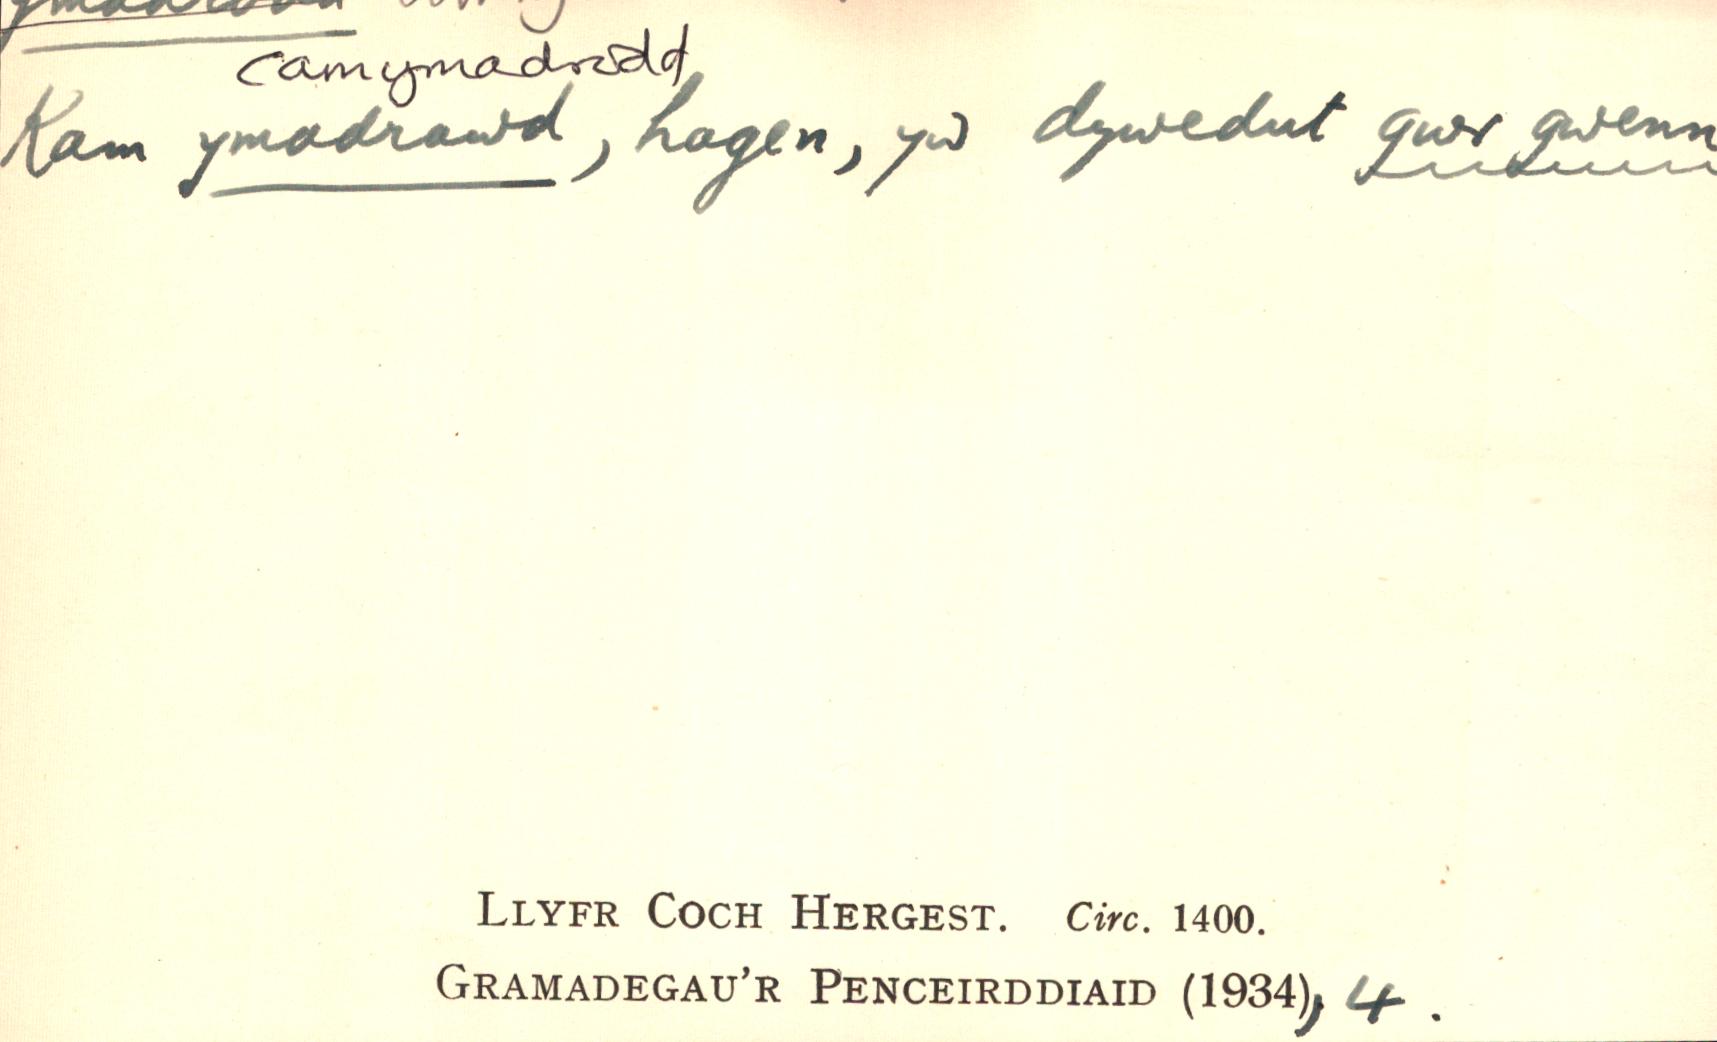 camymadrodd
Kam ymadrawd, hagen, yw dywedut gwr gwenn
LLYFR COCH HERGEST. Circ. 1400.
GRAMADEGAU'R PENCEIRDDIAID (1934), 4.